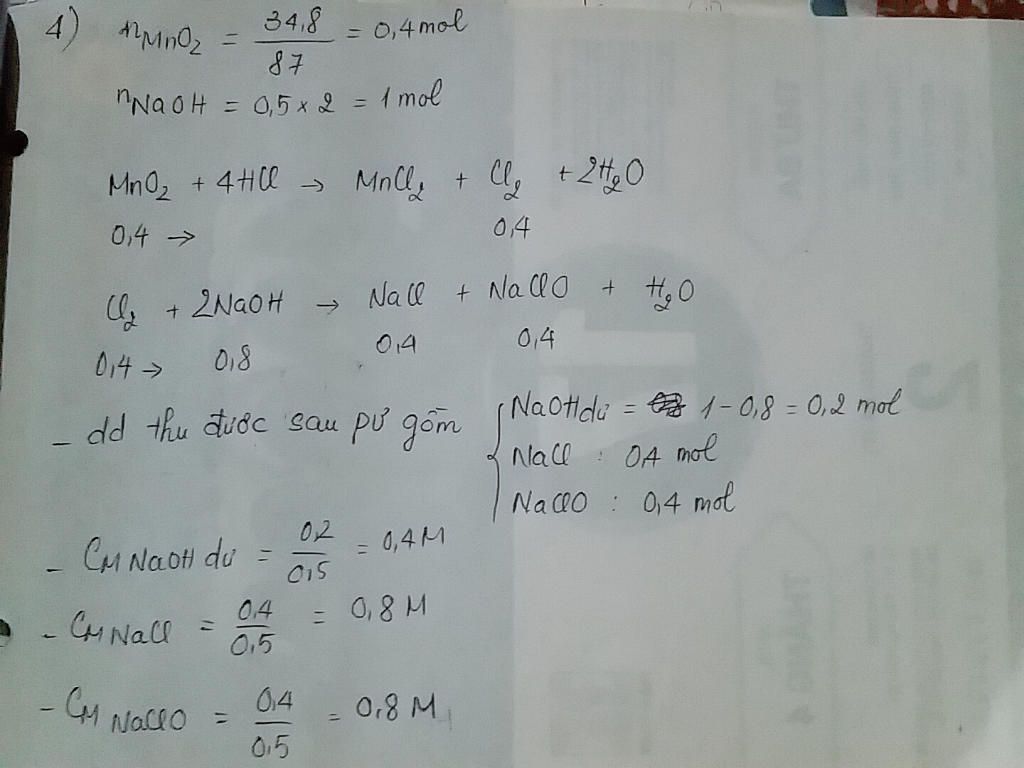 4) nMnO₂ = 34,8/87 = 0,4 mol
nNaOH = 0,5 × 2 = 1 mol
MnO₂ + 4HCl → MnCl₂ + Cl₂ + 2H₂O
0,4 → 0,4
Cl₂ + 2NaOH → NaCl + NaClO + H₂O
0,4 → 0,8 0,4 0,4
- dd thu được sau pư gồm { NaOH dư = 1 - 0,8 = 0,2 mol
NaCl : 0,4 mol
NaClO : 0,4 mol
- CM NaOH dư = 0,2/0,5 = 0,4 M
- CM NaCl = 0,4/0,5 = 0,8 M
- CM NaClO = 0,4/0,5 = 0,8 M